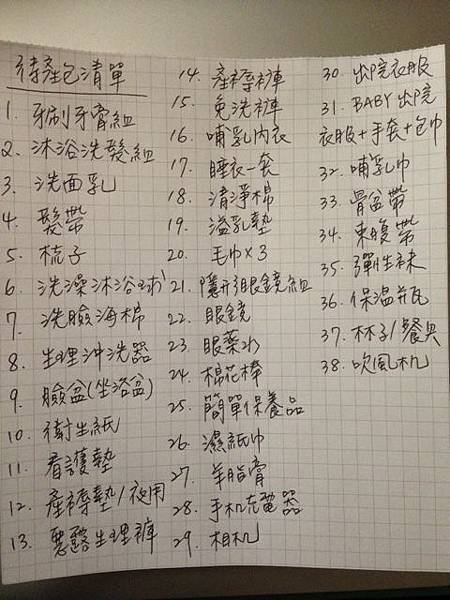 待產包清單
1. 牙刷牙膏組
2. 沐浴洗髮組
3. 洗面乳
4. 髮帶
5. 梳子
6. 洗澡沐浴球
7. 洗臉海棉
8. 生理沖洗器
9. 臉盆(坐浴盆)
10. 衛生紙
11. 看護墊
12. 產褥墊/夜用
13. 惡露生理褲
14. 產褥褲
15. 免洗褲
16. 哺乳內衣
17. 睡衣一套
18. 清淨棉
19. 溢乳墊
20. 毛巾×3
21. 隱形眼鏡組
22. 眼鏡
23. 眼藥水
24. 棉花棒
25. 簡單保養品
26. 濕紙巾
27. 羊脂膏
28. 手机充電器
29. 相机
30. 出院衣服
31. BABY出院
衣服+手套+包巾
32. 哺乳巾
33. 骨盆帶
34. 束腹帶
35. 彈性袜
36. 保溫瓶
37. 杯子/餐具
38. 吹風机